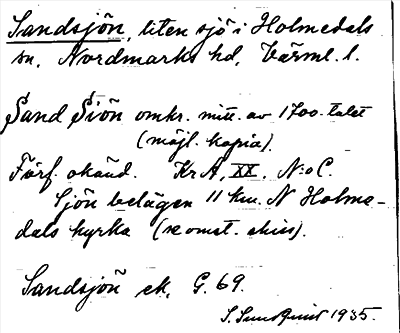 Sandsjön, liten sjö i Holmedals
sn, Nordmarks hd, Värml. l.
Sand Siön omkr. mitt. av 1700-talet
(möjl. kopia).
Förf. okänd. KrA, XX, N:o C.
Sjön belägen 11 km. N Holme-
dals kyrka (se omst. skiss).
Sandsjön ek. G. 69.
S. Sundkvist 1935.